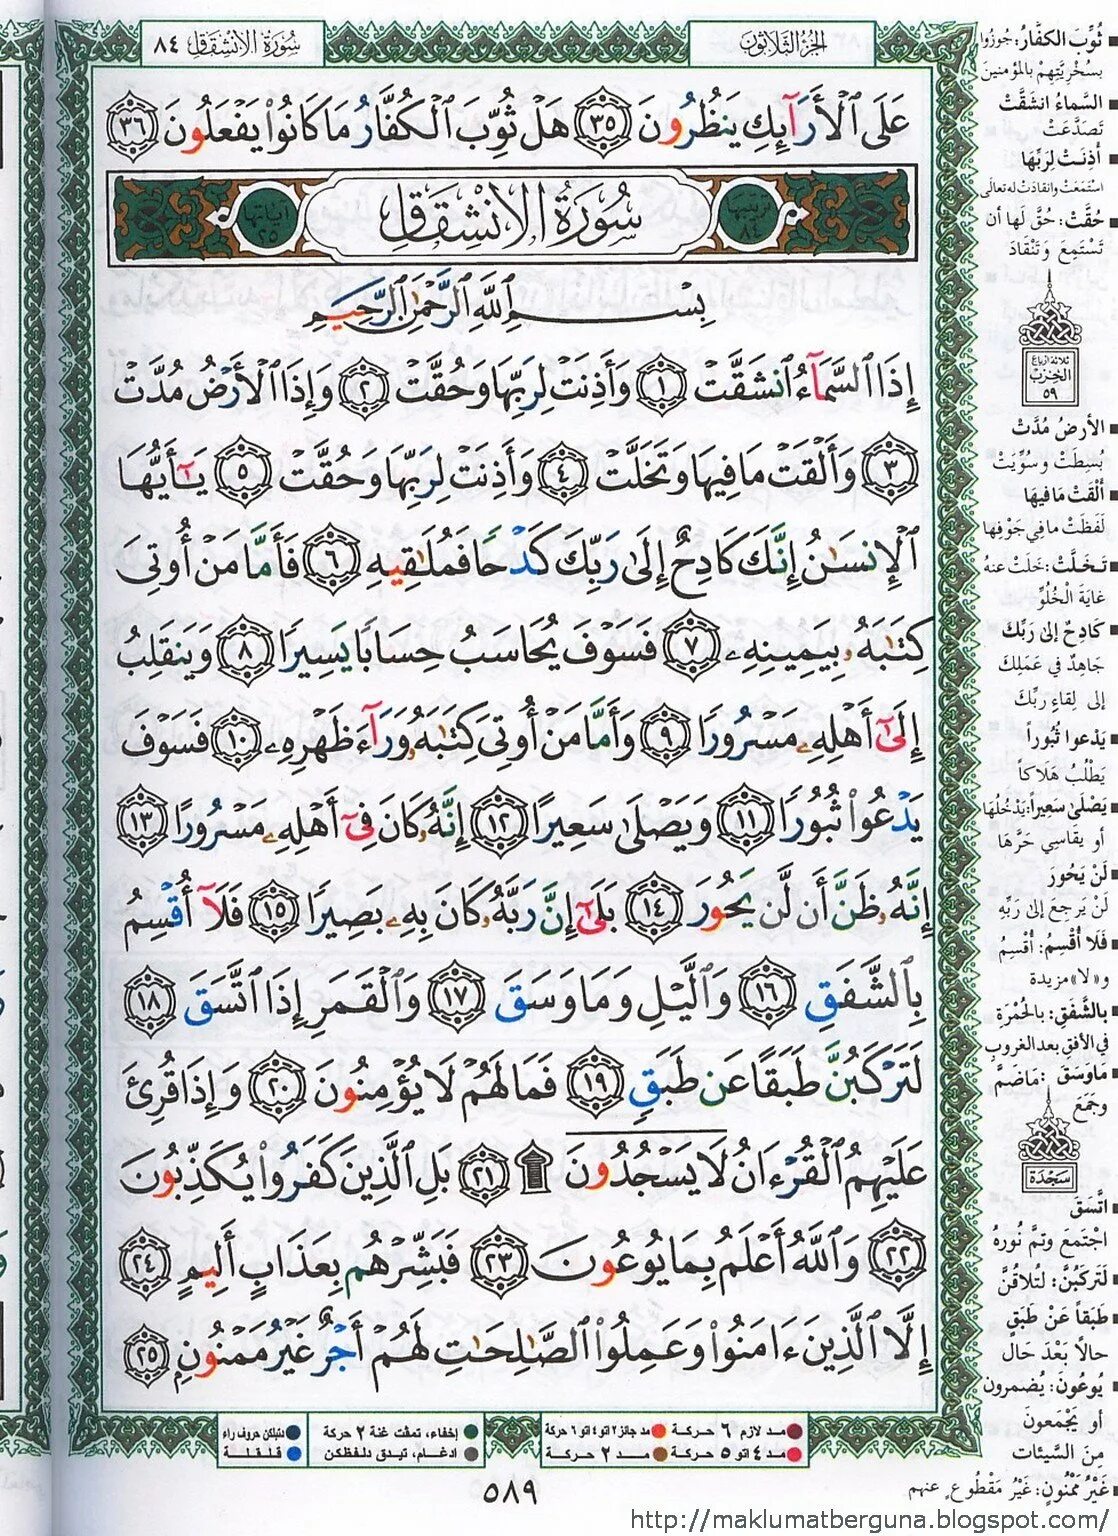 سُورَةُ الانْشِقَاقِ ٨٤
الجُزْءُ الثَّلَاثُونَ
عَلَى ٱلْأَرَآئِكِ يَنظُرُونَ ٣٥ هَلْ ثُوِّبَ ٱلْكُفَّارُ مَا كَانُوا۟ يَفْعَلُونَ ٣٦
ترتيبها ٨٤
سُورَةُ الانْشِقَاقِ
آياتها ٢٥
بِسْمِ ٱللَّهِ ٱلرَّحْمَٰنِ ٱلرَّحِيمِ
إِذَا ٱلسَّمَآءُ ٱنشَقَّتْ ١ وَأَذِنَتْ لِرَبِّهَا وَحُقَّتْ ٢ وَإِذَا ٱلْأَرْضُ مُدَّتْ
٣ وَأَلْقَتْ مَا فِيهَا وَتَخَلَّتْ ٤ وَأَذِنَتْ لِرَبِّهَا وَحُقَّتْ ٥ يَـٰٓأَيُّهَا
ٱلْإِنسَٰنُ إِنَّكَ كَادِحٌ إِلَىٰ رَبِّكَ كَدْحًا فَمُلَٰقِيهِ ٦ فَأَمَّا مَنْ أُوتِىَ
كِتَٰبَهُۥ بِيَمِينِهِۦ ٧ فَسَوْفَ يُحَاسَبُ حِسَابًا يَسِيرًا ٨ وَيَنقَلِبُ
إِلَىٰٓ أَهْلِهِۦ مَسْرُورًا ٩ وَأَمَّا مَنْ أُوتِىَ كِتَٰبَهُۥ وَرَآءَ ظَهْرِهِۦ ١٠ فَسَوْفَ
يَدْعُوا۟ ثُبُورًا ١١ وَيَصْلَىٰ سَعِيرًا ١٢ إِنَّهُۥ كَانَ فِىٓ أَهْلِهِۦ مَسْرُورًا ١٣
إِنَّهُۥ ظَنَّ أَن لَّن يَحُورَ ١٤ بَلَىٰٓ إِنَّ رَبَّهُۥ كَانَ بِهِۦ بَصِيرًا ١٥ فَلَآ أُقْسِمُ
بِٱلشَّفَقِ ١٦ وَٱلَّيْلِ وَمَا وَسَقَ ١٧ وَٱلْقَمَرِ إِذَا ٱتَّسَقَ ١٨
لَتَرْكَبُنَّ طَبَقًا عَن طَبَقٍ ١٩ فَمَا لَهُمْ لَا يُؤْمِنُونَ ٢٠ وَإِذَا قُرِئَ
عَلَيْهِمُ ٱلْقُرْءَانُ لَا يَسْجُدُونَ ۩ ٢١ بَلِ ٱلَّذِينَ كَفَرُوا۟ يُكَذِّبُونَ
٢٢ وَٱللَّهُ أَعْلَمُ بِمَا يُوعُونَ ٢٣ فَبَشِّرْهُم بِعَذَابٍ أَلِيمٍ ٢٤
إِلَّا ٱلَّذِينَ ءَامَنُوا۟ وَعَمِلُوا۟ ٱلصَّٰلِحَٰتِ لَهُمْ أَجْرٌ غَيْرُ مَمْنُونٍ ٢٥
ثُوِّبَ الكفَّارُ: جُوزُوا
بسُخْرِيَّتِهِمْ بالمؤمنينَ
السَّماءُ انشقَّتْ
تَصَدَّعَتْ
أذِنَتْ لِرَبِّهَا
استَمَعَتْ وانقادَتْ له تعالى
حُقَّتْ: حُقَّ لَها أن
تَسْتَمِعَ وَتَنْقَادَ
ثلاثة أرباع
الحزب
٥٩
الأرضُ مُدَّتْ
بُسِطَتْ وسُوِّيَتْ
ألْقَتْ مَا فيهَا
لَفَظَتْ ما في جَوْفِها
تخلَّتْ: خَلَتْ عنهُ
غايَةَ الْخُلُوِّ
كَادِحٌ إلى رَبِّكَ
جَاهِدٌ في عَمَلِكَ
إلى لِقاءِ ربِّكَ
يَدْعوا ثُبُوراً
يَطْلُبُ هَلَاكاً
يَصْلَى سَعيراً: يَدْخُلُهَا
أو يقاسي حَرَّهَا
لَنْ يَحُورَ
لَنْ يَرجعَ إلى رَبِّهِ
فَلَا أُقْسِمُ: أُقْسِمُ
و«لا» مزيدة
بالشَّفَقِ: بالحُمْرَةِ
في الأفقِ بعد الغروبِ
مَا وَسَقَ: مَا ضَمَّ
وجَمَعَ
سَجْدَة
اتَّسَقَ
اجْتَمَعَ وتَمَّ نُورهُ
لَتَركَبُنَّ: لتلاقُنَّ
طَبَقاً عَنْ طَبَقٍ
حالاً بَعْدَ حَال
يُوعُونَ: يُضمرون
أو يَجْمَعونَ
مِنَ السَّيئاتِ
غَيْرُ مَمْنُونٍ: غَيْرُ مَقْطُوعٍ عنهم
مد لازم ٦ حركة
مد جائز ٢ اتو ٤ اتو ٦ حركة
مد ٤ اتو ٥ حركة
مد ٢ حركة
إخفاء، تمفت غنة ٢ حركة
ادغام، تيدق دلفظكن
دتبلكن حروف راء
قلقلة
٥٨٩
http://maklumatberguna.blogspot.com/